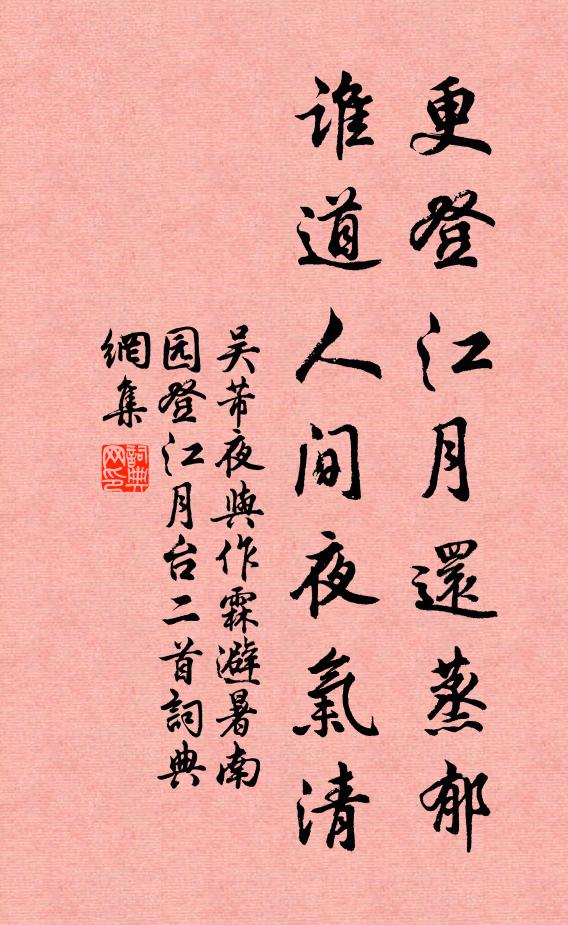 更登江月還蒸郁
誰道人间夜氣清
吴芾夜與作霖避暑南
园登江月台二首詞典
網集
詞典
网印